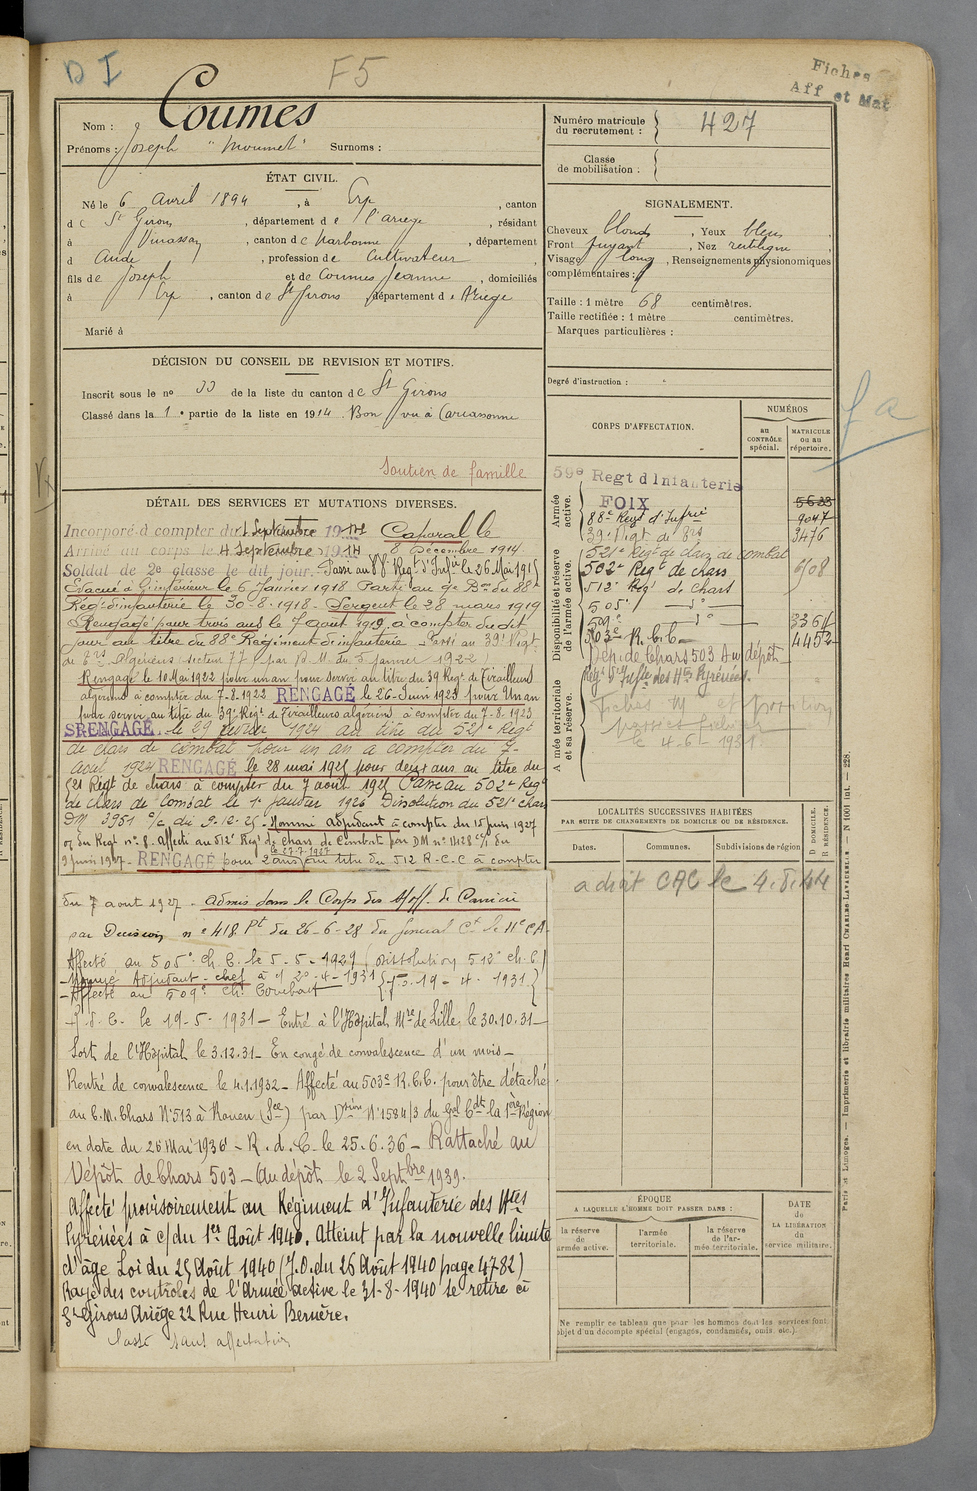 D I
F5
Fiches
Aff et Mat
Nom : Coumes
Prénoms : Joseph "Moumet" Surnoms :
ÉTAT CIVIL.
Né le 6 avril 1894, à Erp, canton
de St Girons, département de l'ariege, résidant
à Vinassan, canton de Narbonne, département
d Aude, profession de Cultivateur,
fils de Joseph et de Coumes Jeanne, domiciliés
à Erp, canton de St Girons, département de Ariege
Marié à
DÉCISION DU CONSEIL DE REVISION ET MOTIFS.
Inscrit sous le no 33 de la liste du canton de St Girons
Classé dans la 1e partie de la liste en 1914 Bon vu à Carcassonne
Soutien de famille
DÉTAIL DES SERVICES ET MUTATIONS DIVERSES.
Incorporé à compter du 1 Septembre 1914 Caporal le
Arrivé au corps le 4 Septembre 1914 8 Décembre 1914.
Soldat de 2e classe le dit jour. Passé au 88e Regt d'Infie le 26 Mai 1915
Evacué à l'intérieur le 6 Janvier 1918 Parti au 9e Bon du 88e
Rég. d'infanterie le 30-8-1918. Sergent le 28 mars 1919
Rengagé pour trois ans le 7 août 1919, à compter du dit
jour au titre du 88e Régiment d'infanterie. Passé au 39e Regt
de Trs Algériens secteur 77 par D.M. du 5 janvier 1922
Rengagé le 10 Mai 1922 pour un an pour servir au titre du 39 Reg. de Tirailleurs
algériens à compter du 7-8-1922 RENGAGÉ le 26-Juin 1923 pour Un an
pour servir au titre du 39e Reg. de Tirailleurs algériens à compter du 7-8-1923
RENGAGÉ le 29 février 1924 au titre du 521e Regt
de chars de combat pour un an a compter du 7-
Août 1924 RENGAGÉ le 28 mai 1925 pour deux ans au titre du
521 Régt de chars à compter du 7 août 1925 Passé au 502e Regt
de chars de Combat le 1er janvier 1926 Dissolution du 521e chars
DM 3951 9/c du 9.12.25. Nommé adjudant à compter du 15 juin 1927
du Regt n° 8. Affecté au 512e Regt de chars de Combat par DM n° 11128 du
9 juin 1927. RENGAGÉ le 27-7-1927 pour 2 ans au titre du 512 R.C.C à compter
du 7 aout 1927. admis dans le Corps des S/off. de Carrière
par Decision n° 418 Pt du 26-6-28 du General Ct le 11e CA
Affecté au 505e Ch. C. le 5-5-1929 (dissolution 512e ch. C)
Nommé Adjudant-chef à c/ 20-4-1931 (J.O. 19-4-1931)
Affecté au 509e Ch. Combat
R.d.C. le 19-5-1931 - Entré à l'Hôpital Mre de Lille, le 30.10.31
Sort de l'Hôpital le 3.12.31 - En congé de convalescence d'un mois
Rentré de convalescence le 4.1.1932 - Affecté au 503e R.C.C. pour être détaché
au C.M. Chars N° 513 à Rouen (Sce) par Dsion N° 1584/3 du Gal Cdt la 1ère Région
en date du 26 Mai 1936 - R.d.C. le 25.6.36 - Rattaché au
Dépôt de Chars 503 - Au dépôt le 2 Septbre 1939.
Affecté provisoirement au Régiment d'Infanterie des Htes
Pyrénées à c/du 1er Août 1940. Atteint par la nouvelle limite
d'âge Loi du 25 Août 1940 (J.O. du 26 Août 1940 page 4782)
Rayé des contrôles de l'Armée active le 31-8-1940 se retire à
St Girons Ariège 22 Rue Henri Bernère.
Passé sans affectation
Numéro matricule
du recrutement : 427
Classe
de mobilisation :
SIGNALEMENT.
Cheveux blonds, Yeux bleus,
Front fuyant, Nez rectiligne,
Visage long, Renseignements physionomiques
complémentaires :
Taille : 1 mètre 68 centimètres.
Taille rectifiée : 1 mètre centimètres.
Marques particulières :
Degré d'instruction :
CORPS D'AFFECTATION.
NUMÉROS
au
CONTRÔLE
spécial.
MATRICULE
ou au
répertoire.
Armée
active.
Disponibilité et réserve
de l'armée active.
Armée territoriale
et sa réserve.
59e Regt d'Infanterie
FOIX 5623
88e Regt d'Infrie 9047
39e Regt de Trs 3476
521e Reg. de chars de combat
502e Regt de chars 6/08
512e Reg. de Chars
505e - d° -
509e - d° - 3361
503e R.C.C 4452
Dép. de Chars 503 Au dépôt
Reg. d'Infie des Htes Pyrénées.
Fiches M et position
le 4-6-1931
fa
LOCALITÉS SUCCESSIVES HABITÉES
PAR SUITE DE CHANGEMENTS DE DOMICILE OU DE RÉSIDENCE.
Dates. Communes. Subdivisions de région
D DOMICILE.
R RÉSIDENCE.
a droit CAC le 4.8.44
ÉPOQUE
A LAQUELLE L'HOMME DOIT PASSER DANS :
la réserve
de
armée active.
l'armée
territoriale.
la réserve
de l'ar-
mée territoriale.
DATE
de
LA LIBÉRATION
du
service militaire.
Ne remplir ce tableau que pour les hommes dont les services font
objet d'un décompte spécial (engagés, condamnés, omis etc.).
Paris et Limoges. — Imprimerie et librairie militaires Henri CHARLES-LAVAUZELLE. — N 1001 int. — 228.